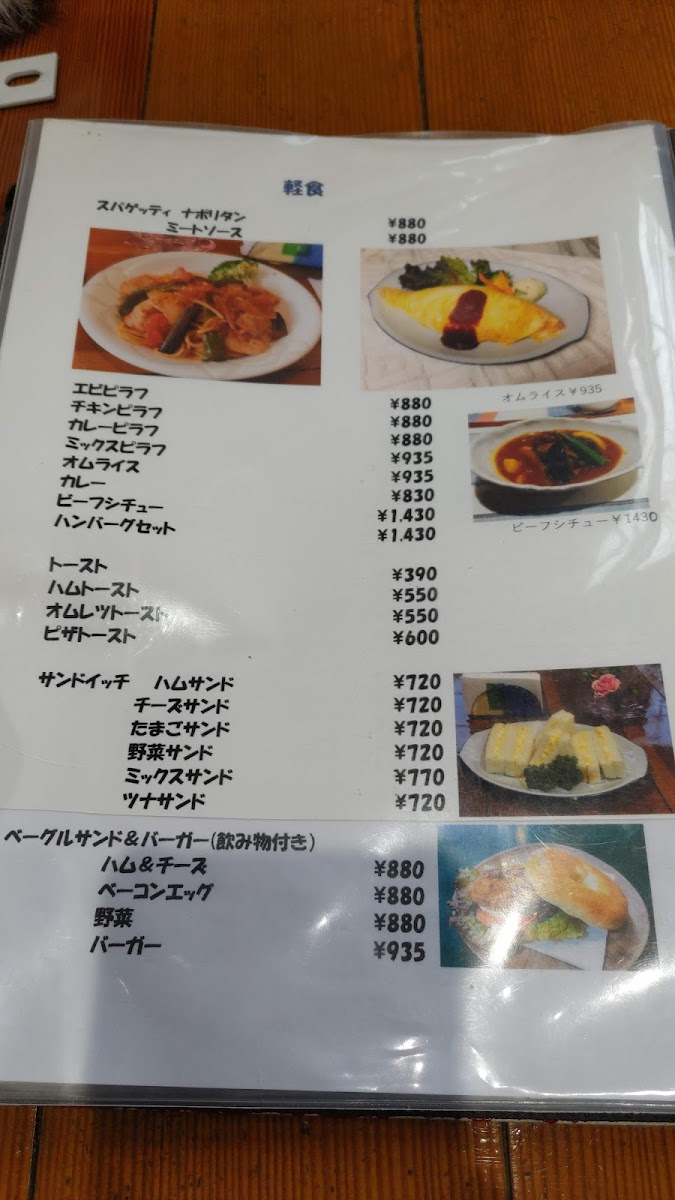 軽食
スパゲッティ ナポリタン ¥880
ミートソース ¥880
オムライス¥935
エビピラフ ¥880
チキンピラフ ¥880
カレーピラフ ¥880
ミックスピラフ ¥935
オムライス ¥935
カレー ¥830
ビーフシチュー ¥1.430
ハンバーグセット ¥1.430
ビーフシチュー¥1430
トースト ¥390
ハムトースト ¥550
オムレツトースト ¥550
ピザトースト ¥600
サンドイッチ ハムサンド ¥720
チーズサンド ¥720
たまごサンド ¥720
野菜サンド ¥720
ミックスサンド ¥770
ツナサンド ¥720
ベーグルサンド&バーガー(飲み物付き)
ハム&チーズ ¥880
ベーコンエッグ ¥880
野菜 ¥880
バーガー ¥935